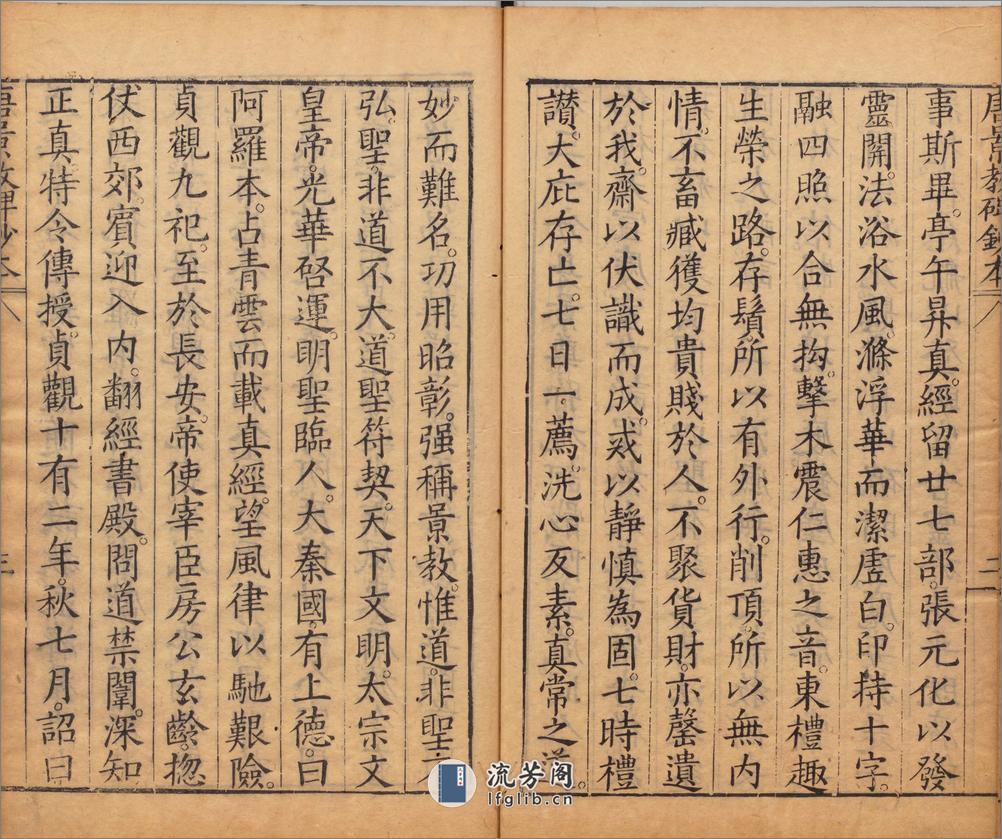 唐景教碑鈔本
二
事斯畢。亭午昇真。經留廿七部。張元化以發
靈關。法浴水風。滌浮華而潔虛白。印持十字。
融四照以合無拘。擊木震仁惠之音。東禮趣
生榮之路。存鬚。所以有外行。削頂。所以無內
情。不畜臧獲。均貴賤於人。不聚貨財。亦罄遺
於我。齋以伏識而成。戒以靜慎為固。七時禮
讃。大庇存亡。七日一薦。洗心反素。真常之道。
妙而難名。功用昭彰。强稱景教。惟道。非聖不
弘。聖。非道不大。道聖符契。天下文明。太宗文
皇帝。光華啓運。明聖臨人。大秦國。有上德。曰
阿羅本。占青雲而載真經。望風律以馳艱險。
貞觀九祀。至於長安。帝使宰臣房公玄齡。惣
仗西郊。賓迎入內。翻經書殿。問道禁闈。深知
正真。特令傳授。貞觀十有二年。秋七月。詔曰
唐景教碑鈔本
三
流芳阁
lfglib.cn